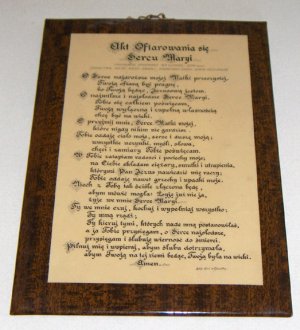 Akt Ofiarowania się
Sercu Maryi
O Serce najdroższe mojej Matki przeczystej,
Twoją ofiarą być pragnę,
bo Twoją będąc, Jezusową jestem.
O najmilsze i najsłodsze Serce Maryi,
Tobie się całkiem poświęcam,
Twoją wyłączną i zupełną własnością
chcę być na wieki.
O przyjmij mnie, Serce Matki mojej,
które nigdy nikim nie gardzisz.
Tobie oddaję ciało moje, serce i duszę moją;
wszystkie uczynki, myśli, słowa,
chęci i zamiary Tobie poświęcam.
W Tobie zatapiam radości i pociechy moje;
na Ciebie składam ciężary, smutki i utrapienia,
którymi Pan Jezus nawiedzić mię raczy;
Tobie oddaję nawet grzechy i upadki moje.
Niech z Tobą tak ściśle złączona będę,
abym mówić mogła: Żyję już nie ja,
żyje we mnie Serce Maryi.
Ty we mnie czuj, kochaj i wypełniaj wszystko;
Ty mną rządź;
Ty kieruj tymi, których nade mną postanowiłaś,
a ja Tobie przysięgam, o Serce najsłodsze,
przysięgam i ślubuję wierność do śmierci.
Pilnuj mię i wspieraj, abym ślubu dotrzymała,
abym Twoją na tej ziemi będąc, Twoją była na wieki.
Amen.